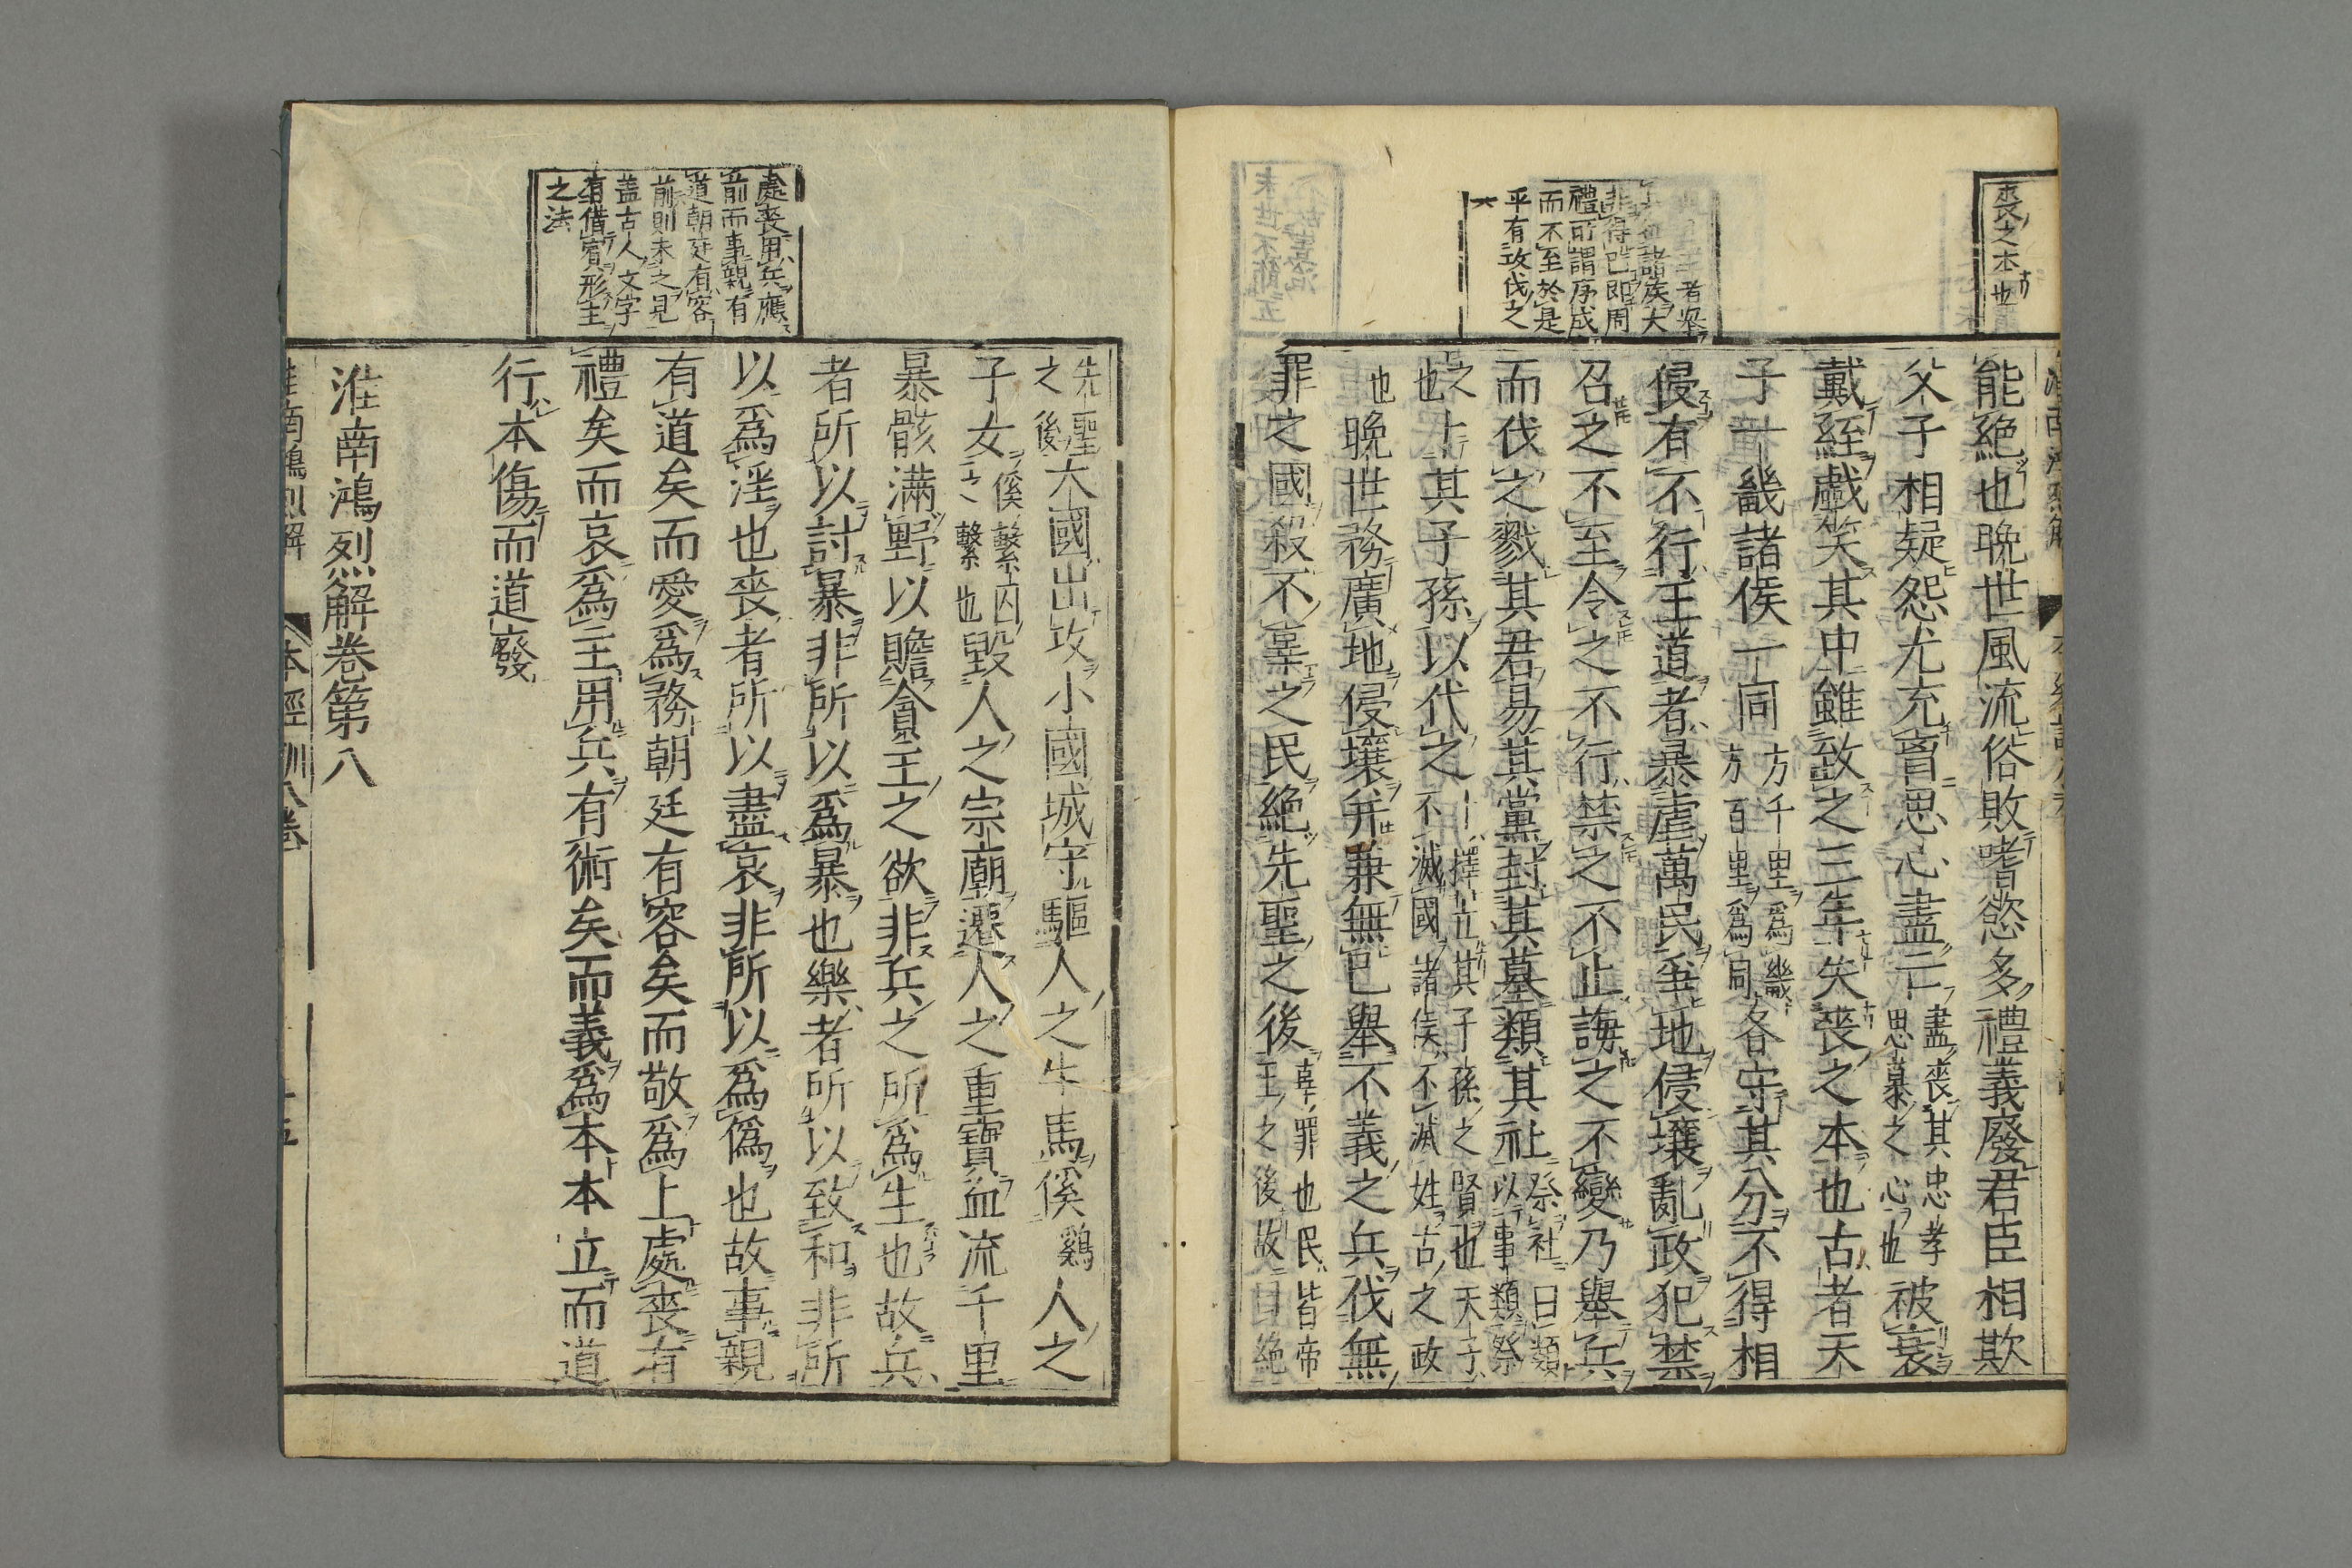 喪之本也
能絶也晩世風流俗敗嗜慾多禮義廢君臣相欺
父子相疑怨尤充胷思心盡亡盡喪其忠孝思慕之心也被衰
戴絰戲笑其中雖致之三年失喪之本也古者天
子一畿諸侯一同方千里爲畿方百里爲同各守其分不得相
侵有不行王道者暴虐萬民爭地侵壤亂政犯禁
召之不至令之不行禁之不止誨之不變乃舉兵
而伐之戮其君易其黨封其墓類其社祭社曰類以事類祭
之也卜其子孫以代之卜擇立其子孫之賢也天子不滅國諸侯不滅姓古之政
也晩世務廣地侵壤并兼無已舉不義之兵伐無
罪之國殺不辜之民絶先聖之後辜罪也民皆帝王之後故曰絶
諸侯大
非得已即周
禮所謂序成
而不至於是
乎有攻伐之
先聖之後大國出攻小國城守驅人之牛馬傒雞人之
子女傒繫囚之繫也毀人之宗廟遷人之重寶血流千里
暴骸滿野以贍貪主之欲非兵之所爲生也故兵
者所以討暴非所以爲暴也樂者所以致和非所
以爲淫也喪者所以盡哀非所以爲僞也故事親
有道矣而愛爲務朝廷有容矣而敬爲上處喪有
禮矣而哀爲主用兵有術矣而義爲本本立而道
行本傷而道廢
處喪用兵應
前而事親有
道朝廷有容
前則未之見
蓋古人文字
有借賓形主
之法
淮南鴻烈解卷第八
淮南鴻烈解 本經訓八卷